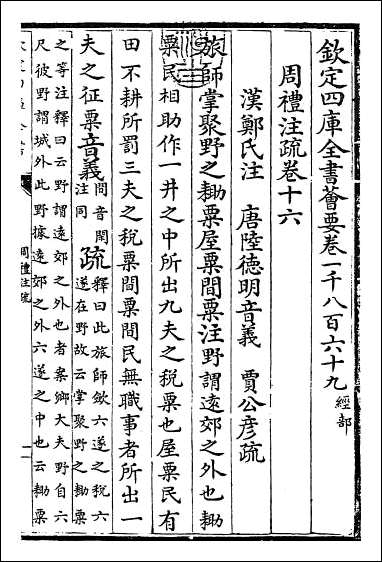 欽定四庫全書薈要卷一千八百六十九 經部
周禮注疏卷十六
漢鄭氏注 唐陸德明音義 賈公彥疏
旅師掌聚野之耡粟屋粟間粟注野謂遠郊之外也耡
粟民相助作一井之中所出九夫之稅粟也屋粟民有
田不耕所罰三夫之稅粟間粟間民無職事者所出一
夫之征粟音義間音閑注同疏釋曰此旅師斂六遂之稅六遂在野故云掌聚野之耡粟
之等注釋曰云野謂遠郊之外也者案鄉大夫野自六
尺彼野謂城外此野據遠郊之外六遂之中也云耡粟
周禮注疏